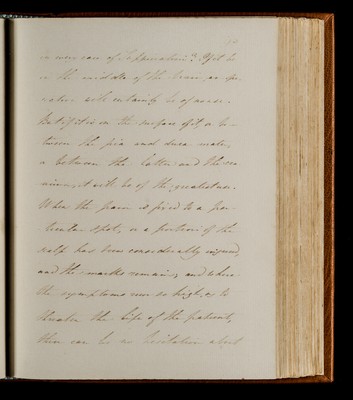 in every case of Suppuration? If it be
in the middle of the brain, an ope-
ration will certainly be of no use.
But if it is on the surface of it, or be-
tween the pia and dura mater,
or between the latter and the cra-
nium, it will be of the greatest use.
When the pain is fixed to a par-
ticular spot, or a portion of the
scalp has been considerably injured,
and the marks remain, and where
the symptoms run so high, as to
threaten the life of the patient,
there can be no hesitation about